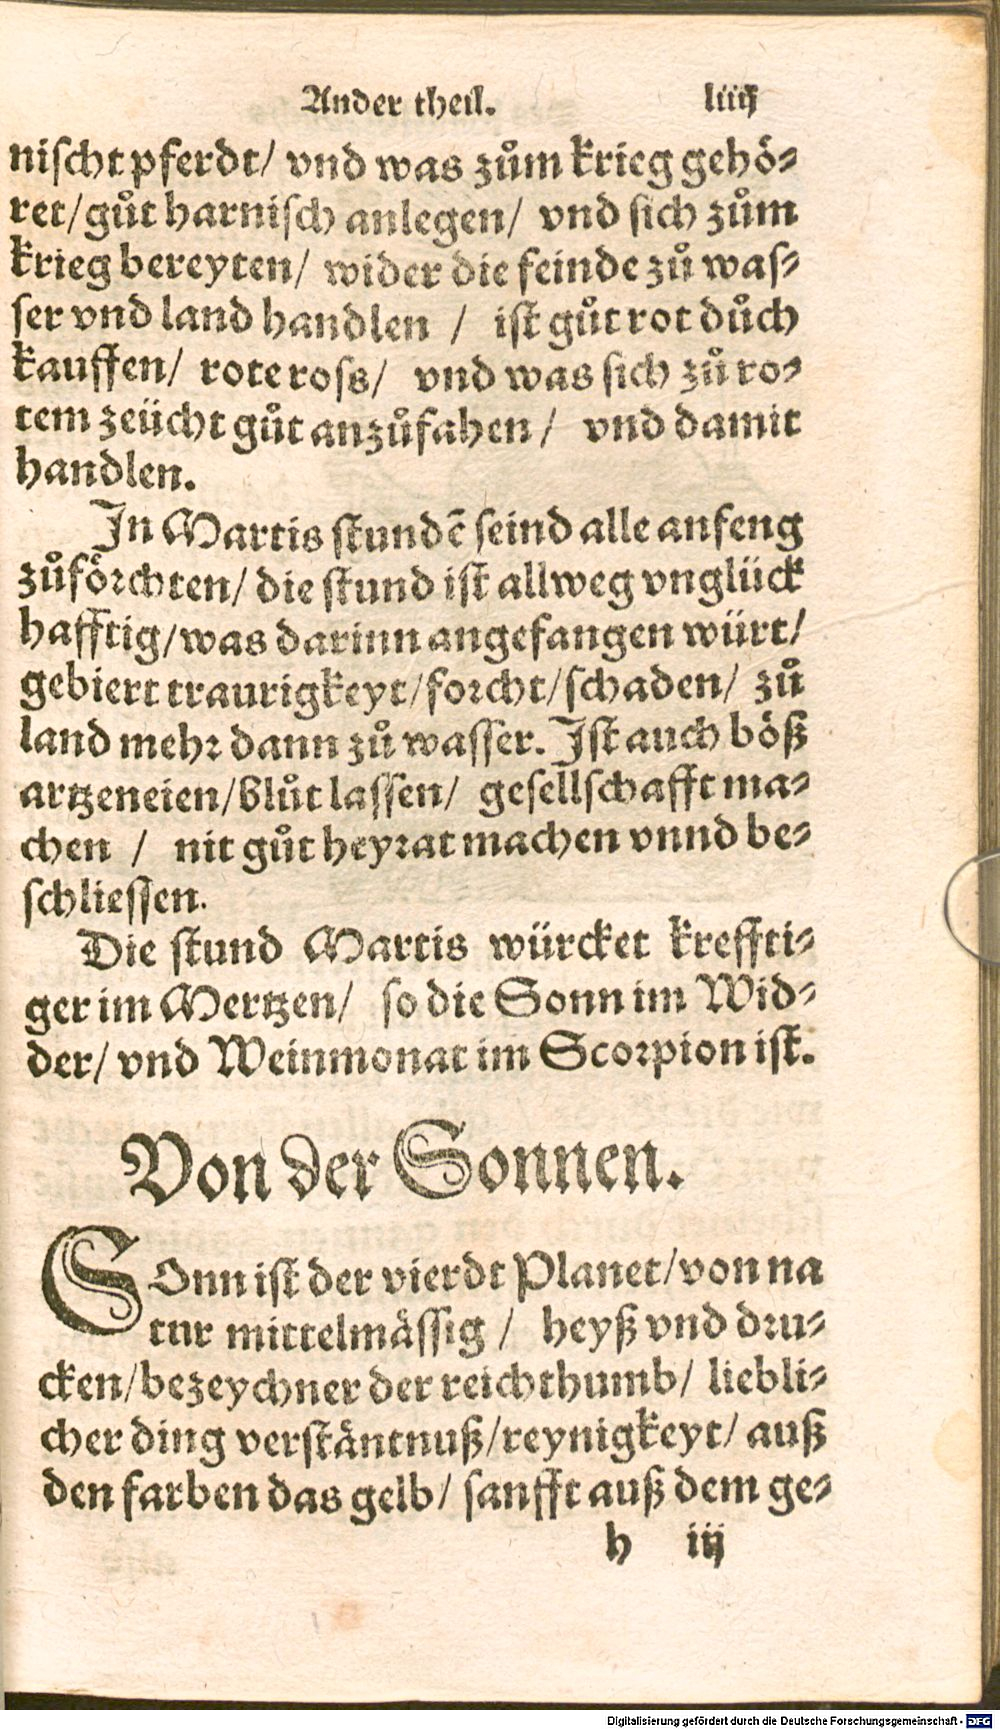 Ander theil. liiij
nischt pferdt/ vnd was zům krieg gehö⸗
ret/gůt harnisch anlegen/ vnd sich zům
krieg bereyten/ wider die feinde zů was⸗
ser vnd land handlen / ist gůt rot důch
kauffen/ rote ross/ vnd was sich zů ro⸗
tem zeücht gůt anzůfahen/ vnd damit
handlen.
In Martis stundē seind alle anfeng
zůförchten/ die stund ist allweg vnglück
hafftig/was darinn angefangen würt/
gebiert traurigkeyt/forcht/schaden/ zů
land mehr dann zů wasser. Ist auch böß
artzeneien/blůt lassen/ gesellschafft ma⸗
chen / nit gůt heyrat machen vnnd be⸗
schliessen.
Die stund Martis würcket kreffti⸗
ger im Mertzen/ so die Sonn im Wid⸗
der/ vnd Weinmonat im Scorpion ist.
Von der Sonnen.
SOnn ist der vierdt Planet/von na
tur mittelmässig / heyß vnd dru⸗
cken/bezeychner der reichthumb/ liebli⸗
cher ding verstäntnuß/reynigkeyt/ auß
den farben das gelb/ sanfft auß dem ge⸗
h iij
Digitalisierung gefördert durch die Deutsche Forschungsgemeinschaft - DFG